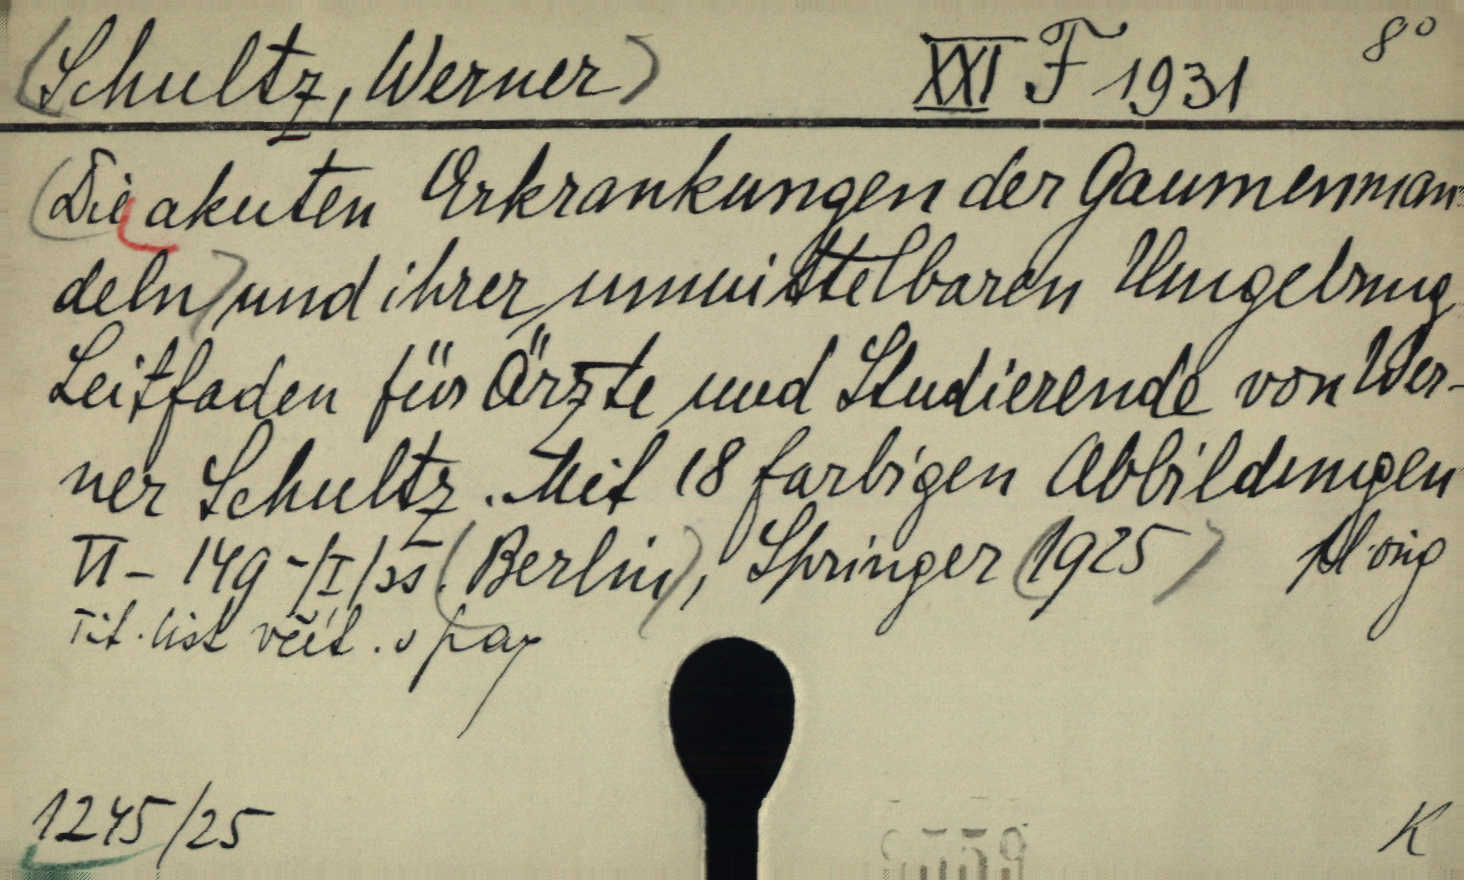 (Schultz, Werner) XXI F 1931 8°
(Die akuten Erkrankungen der Gaumenman
deln) und ihrer unmittelbaren Umgebung
Leitfaden für Ärzte und Studierende von Wer-
ner Schultz. Mit 18 farbigen Abbildungen
II - 149 -/I/ ss. (Berlin), Springer (1925) Pl. orig
Tit. list včít. v pag
1245/25 K